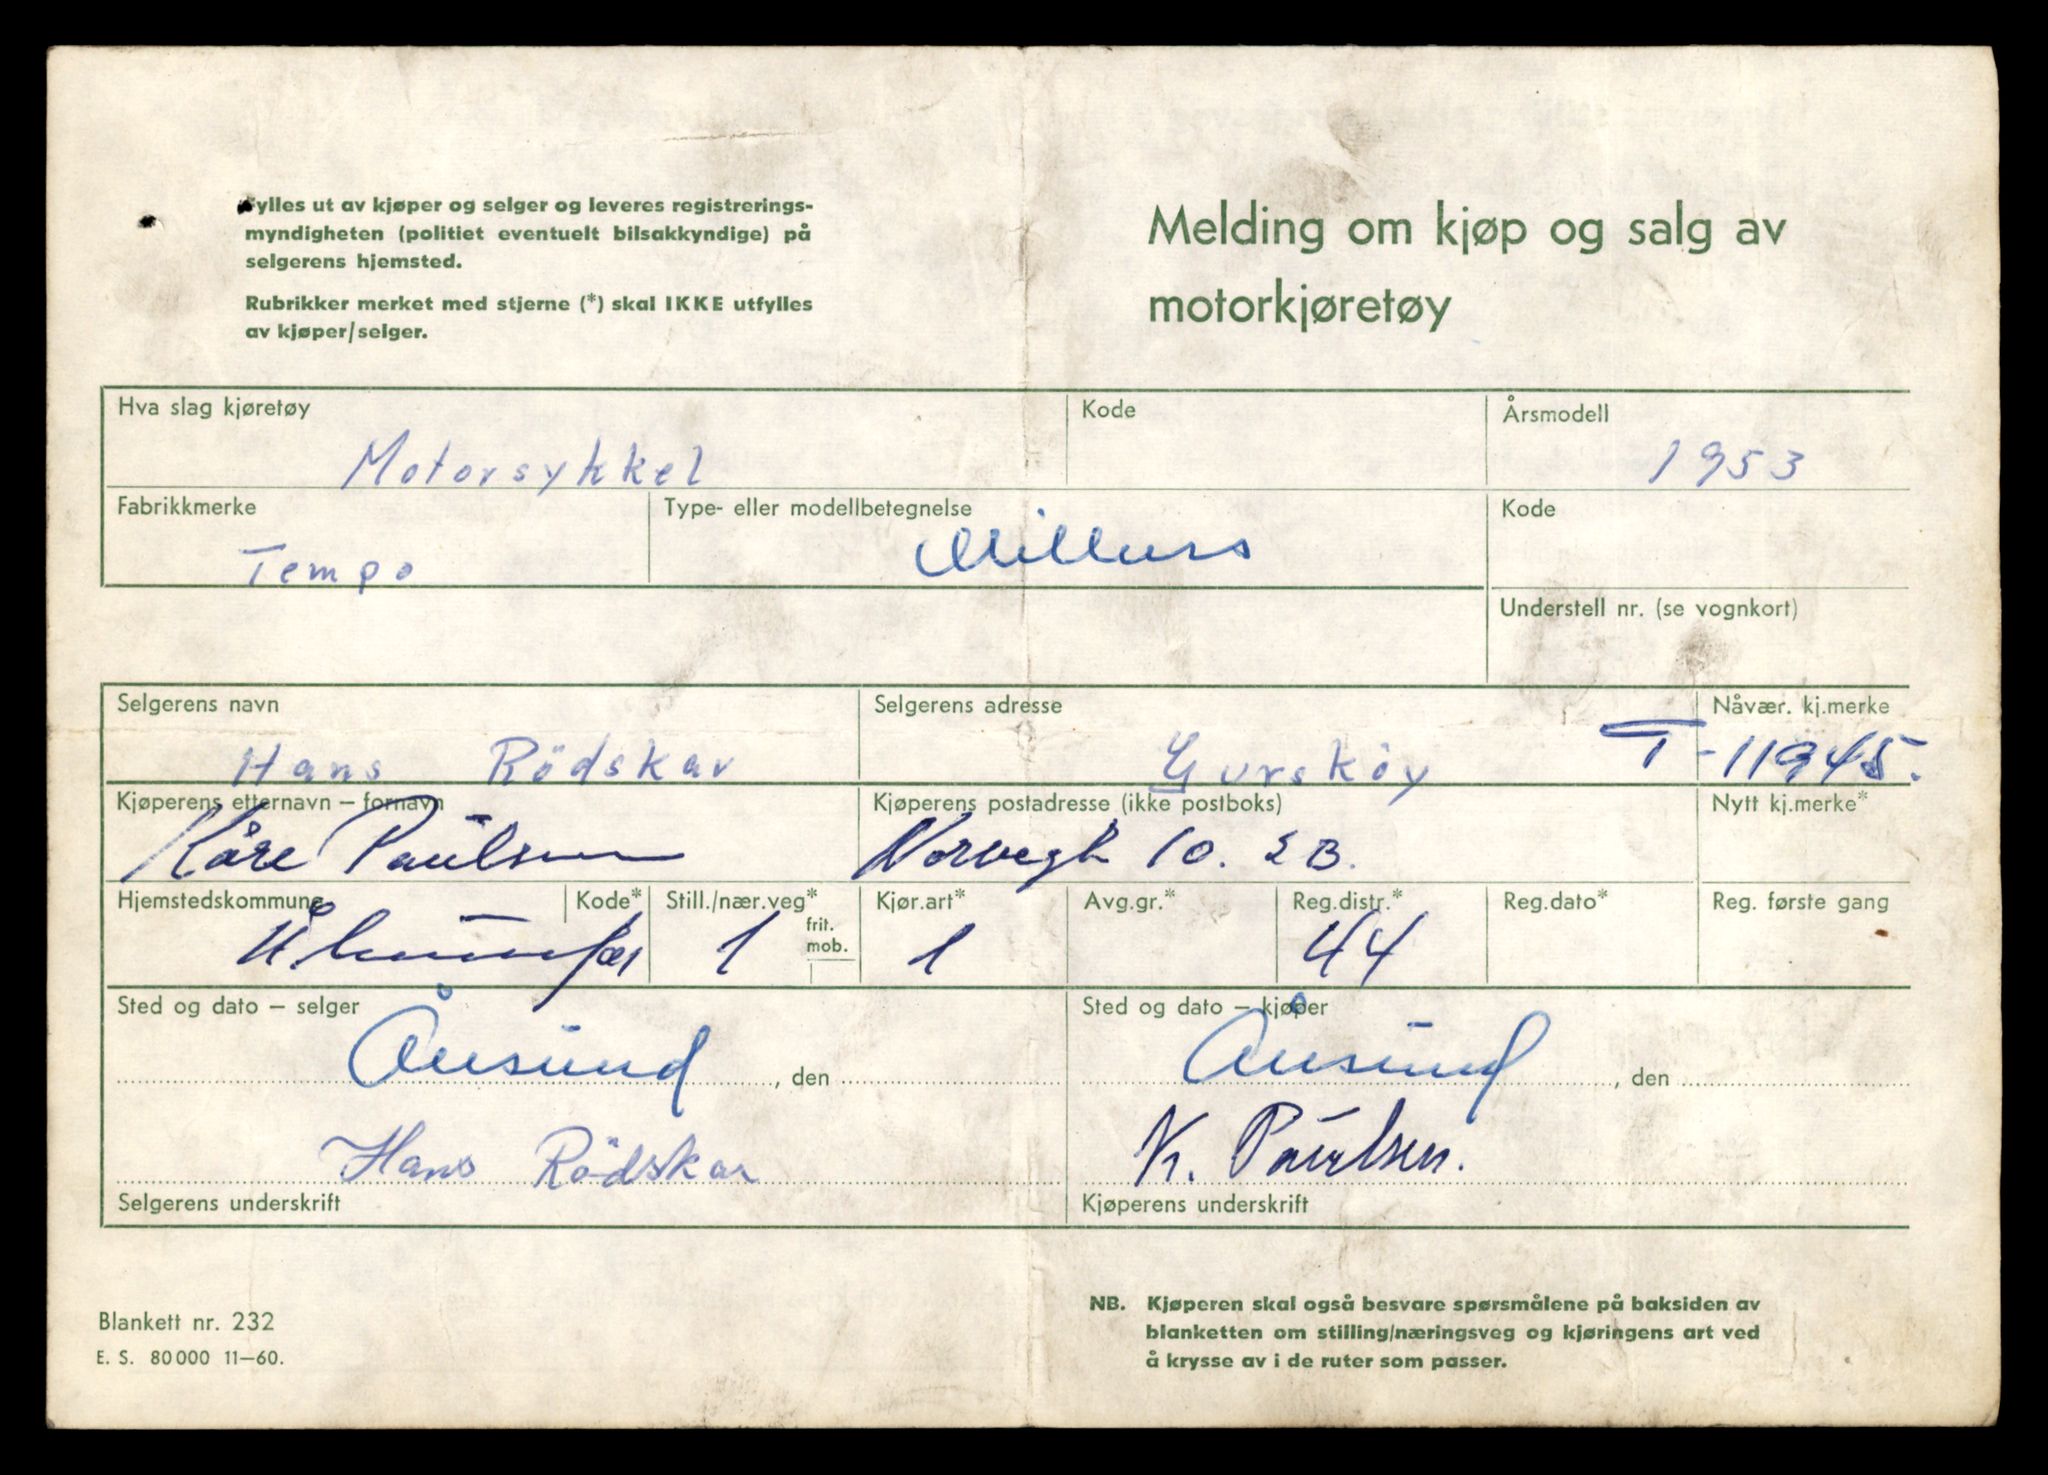 Fylles ut av kjøper og selger og leveres registrerings-
myndigheten (politiet eventuelt bilsakkyndige) på
selgerens hjemsted.
Rubrikker merket med stjerne (*) skal IKKE utfylles
av kjøper/selger.
Melding om kjøp og salg av
motorkjøretøy
Hva slag kjøretøy Kode Årsmodell
Motorsykkel 1953
Fabrikkmerke Type- eller modellbetegnelse Kode
Tempo
Understell nr. (se vognkort)
Selgerens navn Selgerens adresse Nåvær. kj.merke
Hans Rödskar Gursköy T-11945.
Kjøperens etternavn – fornavn Kjøperens postadresse (ikke postboks) Nytt kj.merke*
Kåre Paulsen 10. 2B.
Hjemstedskommune Kode* Still./nær.veg* frit. mob. Kjør.art* Avg.gr.* Reg.distr.* Reg.dato* Reg. første gang
1 1 44
Sted og dato – selger Sted og dato – kjøper
Ålesund , den Ålesund , den
Hans Rödskar K. Paulsen.
Selgerens underskrift Kjøperens underskrift
Blankett nr. 232
E. S. 80000 11–60.
NB. Kjøperen skal også besvare spørsmålene på baksiden av
blanketten om stilling/næringsveg og kjøringens art ved
å krysse av i de ruter som passer.